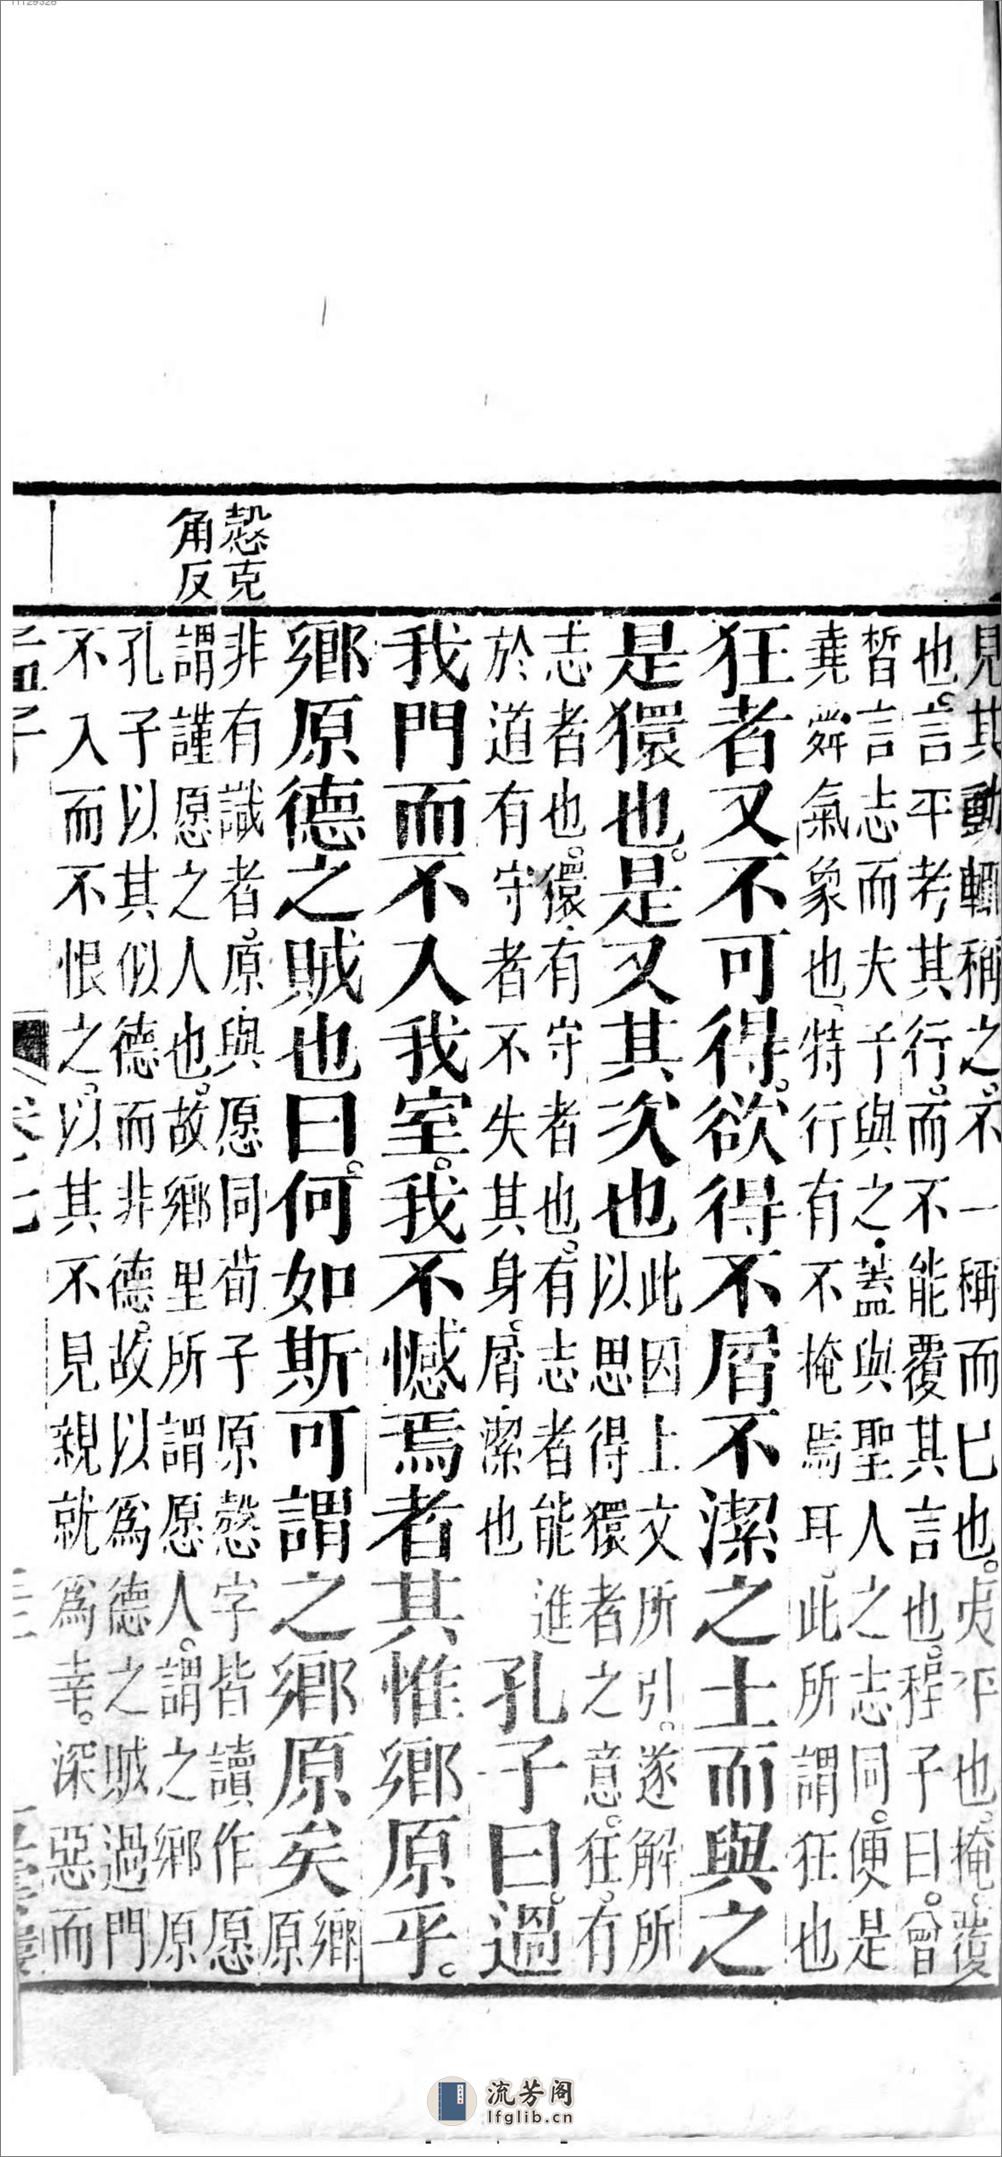 11129328
愨克
角反
見其動輒稱之不一稱而已也夷平也掩覆
也言平考其行而不能覆其言也程子曰曾
晳言志而夫子與之蓋與聖人之志同便是
堯舜氣象也特行有不掩焉耳此所謂狂也
狂者又不可得欲得不屑不潔之士而與之
是獧也是又其次也
此因上文所引遂解所
以思得獧者之意狂有
志者也獧有守者也有志者能進
於道有守者不失其身屑潔也
孔子曰過
我門而不入我室我不憾焉者其惟鄉原乎
鄉原德之賊也曰何如斯可謂之鄉原矣
鄉
原
非有識者原與愿同荀子原愨字皆讀作愿
謂謹愿之人也故鄉里所謂愿人謂之鄉原
孔子以其似德而非德故以為德之賊過門
不入而不恨之以其不見親就為幸深惡而
孟子
流芳阁
lfglib.cn